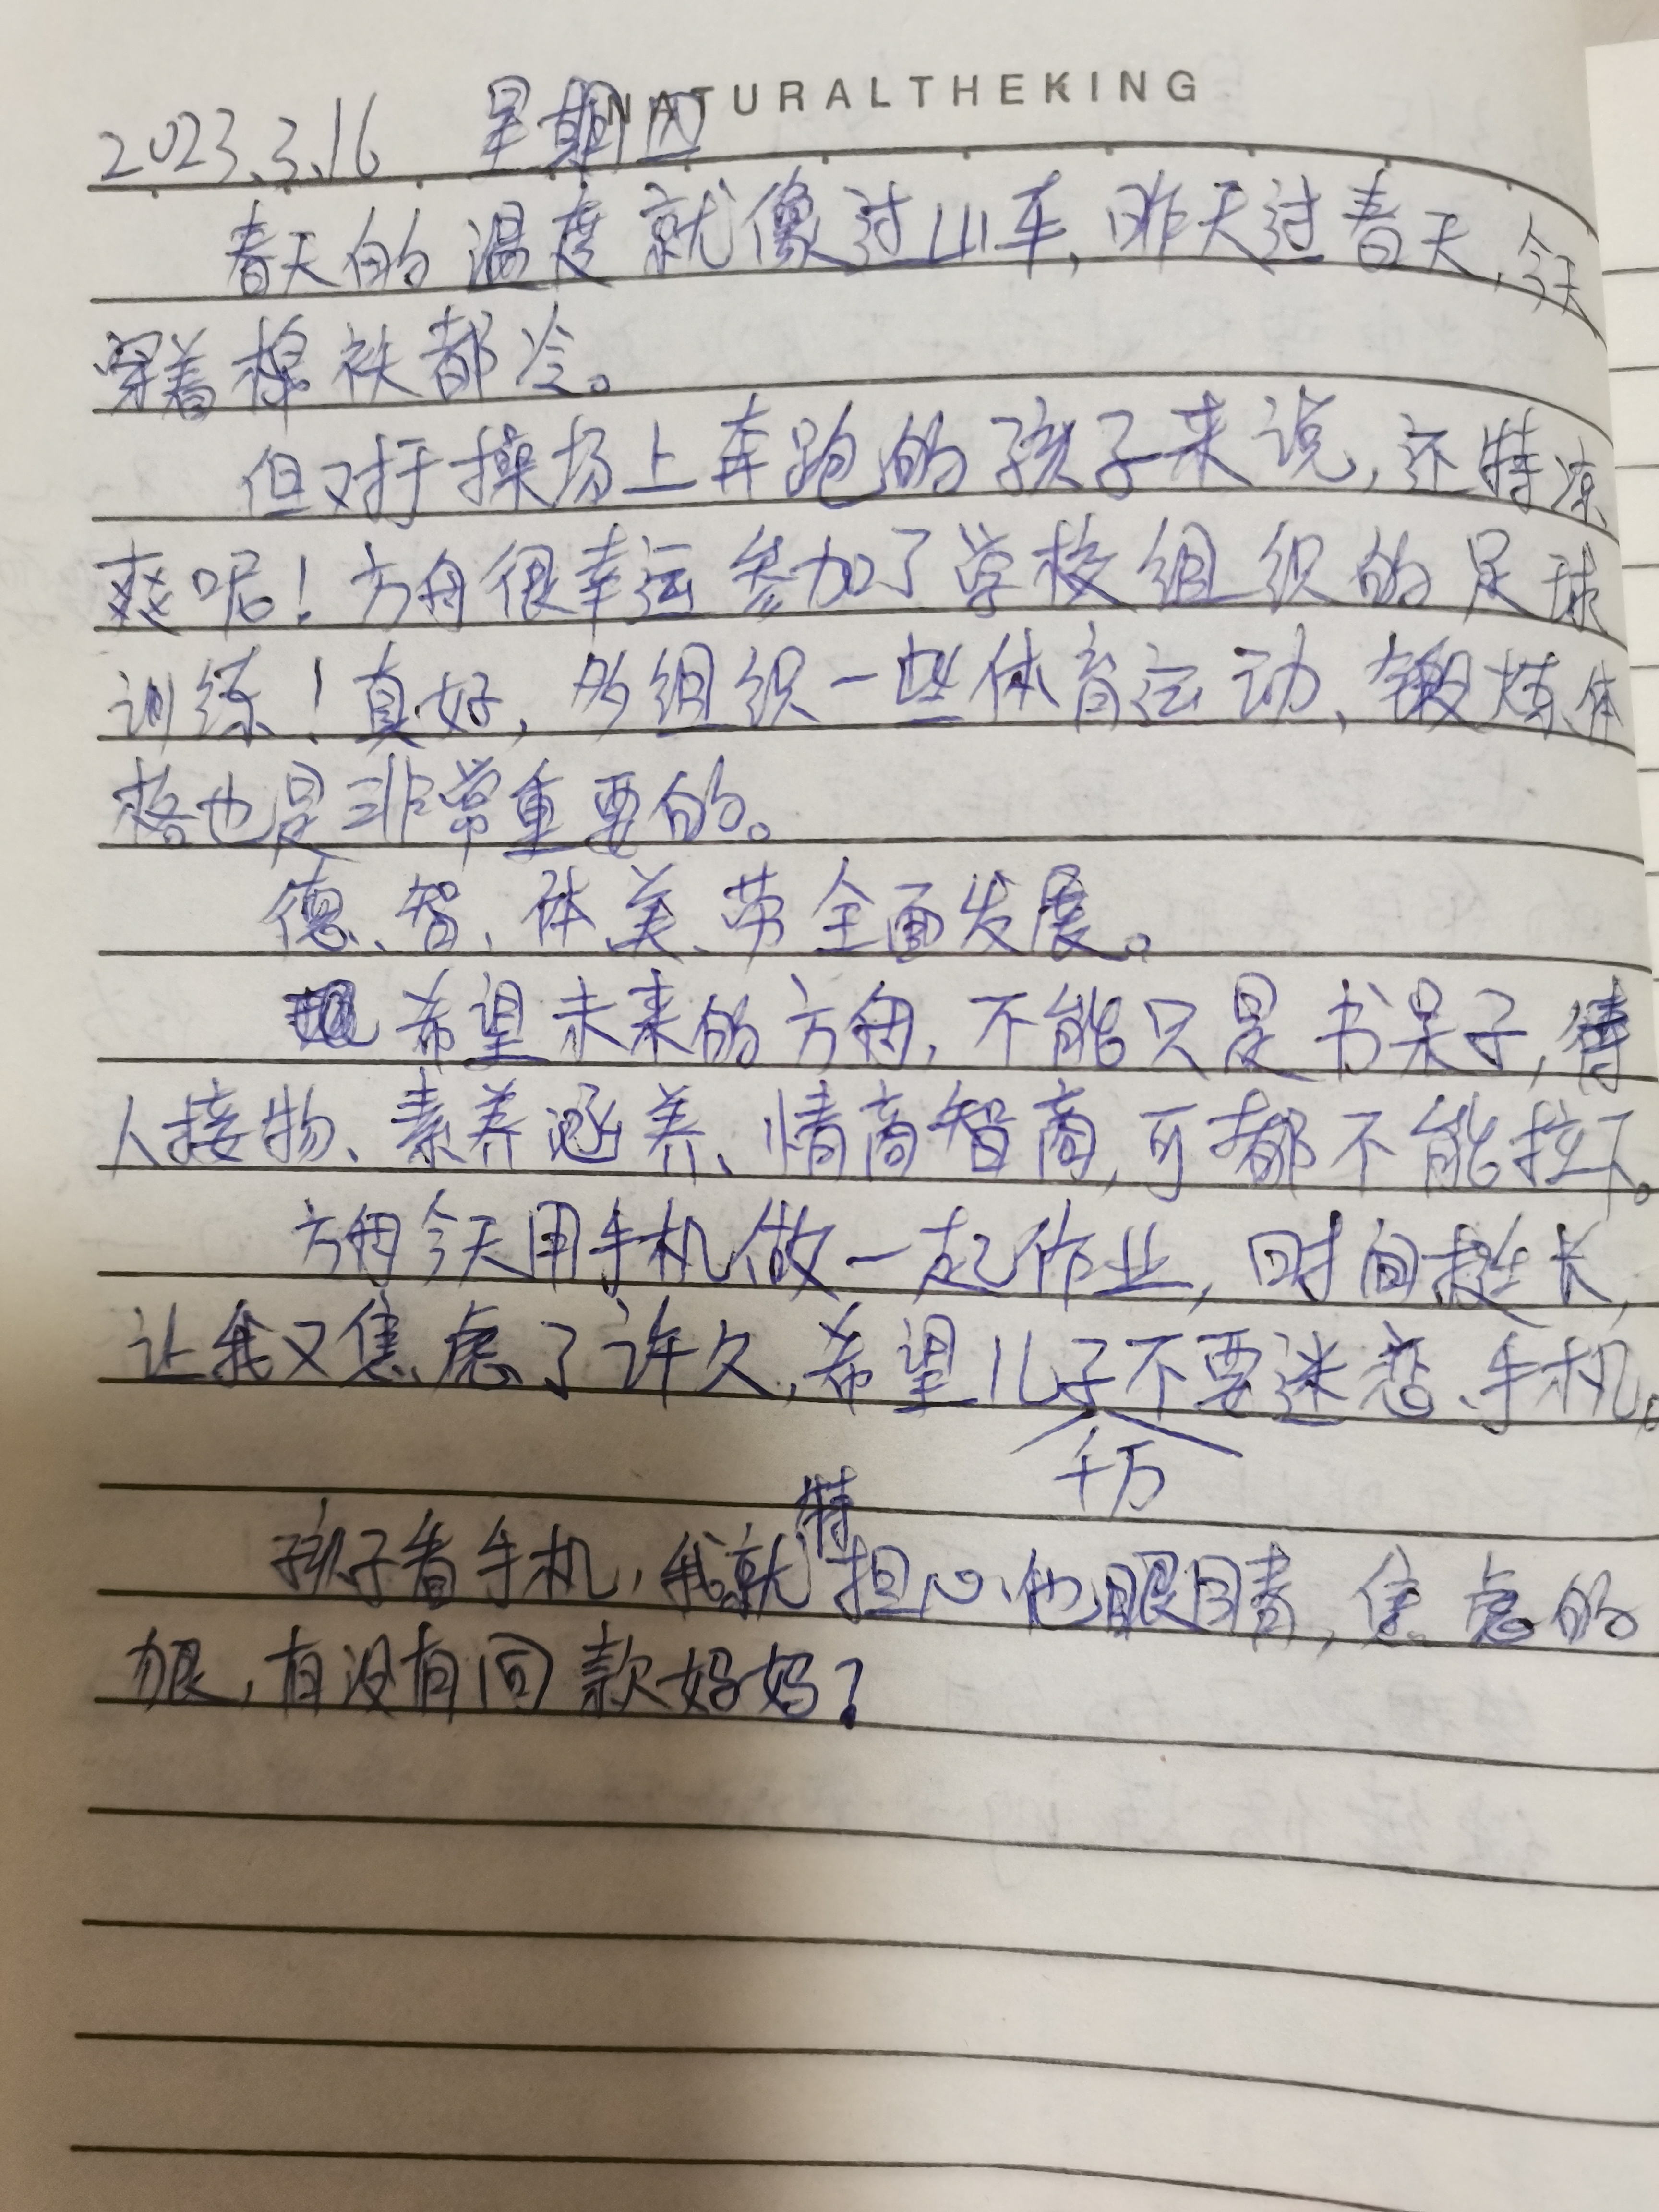 NATURALTHEKING
2023.3.16 星期四
春天的温度就像过山车,昨天过春天,今天
穿着棉袄都冷。
但对于操场上奔跑的孩子来说,还特凉
爽呢!方舟很幸运参加了学校组织的足球
训练!真好,多组织一些体育运动、锻炼体
格也是非常重要的。
德、智、体、美、劳全面发展。
希望未来的方舟,不能只是书呆子,待
人接物、素养涵养、情商智商,可都不能拉下。
方舟今天用手机做一起作业,时间挺长,
让我又焦虑了许久,希望儿子不要迷恋手机。
千万
特
孩子看手机,我就担心他眼睛,焦虑的
狠,有没有同款妈妈?